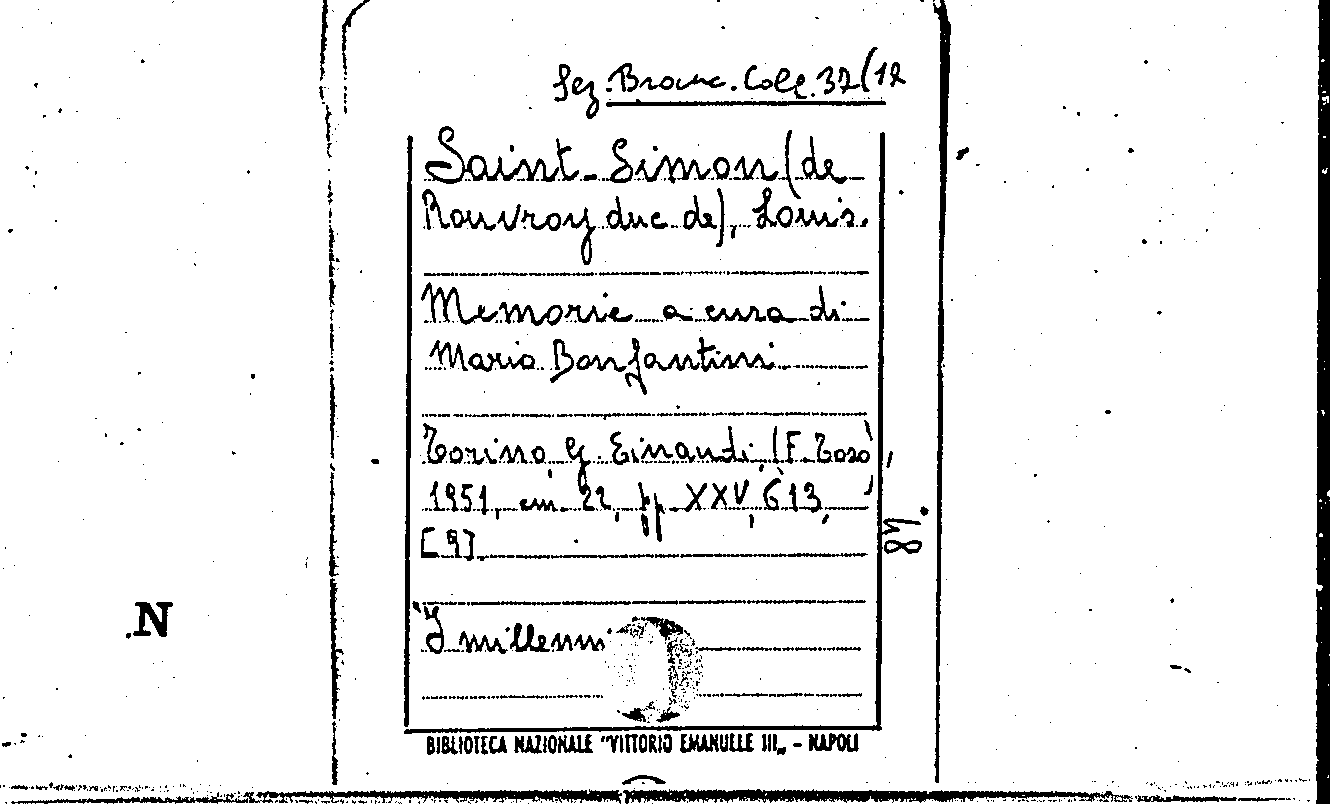 Sez. Branc. Coll. 37(12
Saint-Simon (de
Rouvroy duc de), Louis.
Memorie a cura di
Mario Bonfantini
Torino, G. Einaudi, (F. Toso),
1951, cm. 22, pp. XXV, 613,
[9].
87.
N
"I millenni
BIBLIOTECA NAZIONALE "VITTORIO EMANUELE III„ - NAPOLI